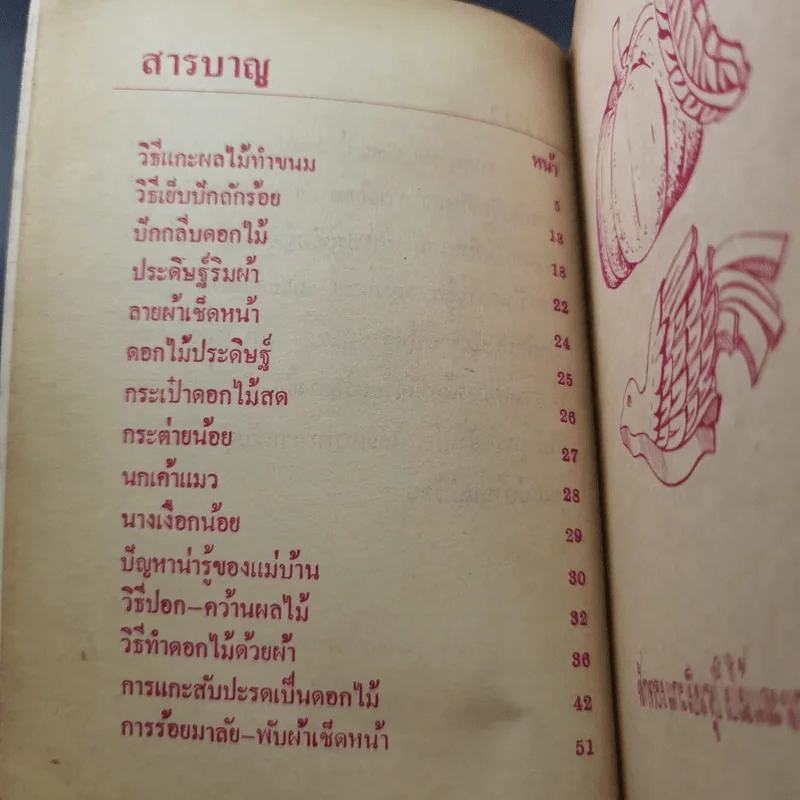 สารบาญ
หน้า
วิธีแกะผลไม้ทำขนม 5
วิธีเย็บปักถักร้อย 13
ปักกลีบดอกไม้ 18
ประดิษฐ์ริมผ้า 22
ลายผ้าเช็ดหน้า 24
ดอกไม้ประดิษฐ์ 25
กระเป๋าดอกไม้สด 26
กระต่ายน้อย 27
นกเค้าแมว 28
นางเงือกน้อย 29
ปัญหาน่ารู้ของแม่บ้าน 30
วิธีปอก-คว้านผลไม้ 32
วิธีทำดอกไม้ด้วยผ้า 36
การแกะสับปะรดเป็นดอกไม้ 42
การร้อยมาลัย-พับผ้าเช็ดหน้า 51